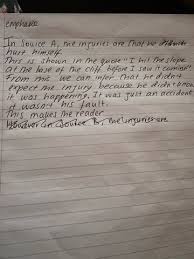 emphasis
In Source A, the injuries are that he
hurt himself.
This is shown in the quote "I hit the slope
at the base of the cliff before I saw it coming".
From this we can infer that he didn't
expect the injury because he didn't know
it was happening. It was just an accident
it wasn't his fault.
This makes the reader
However in Source B, the injuries are